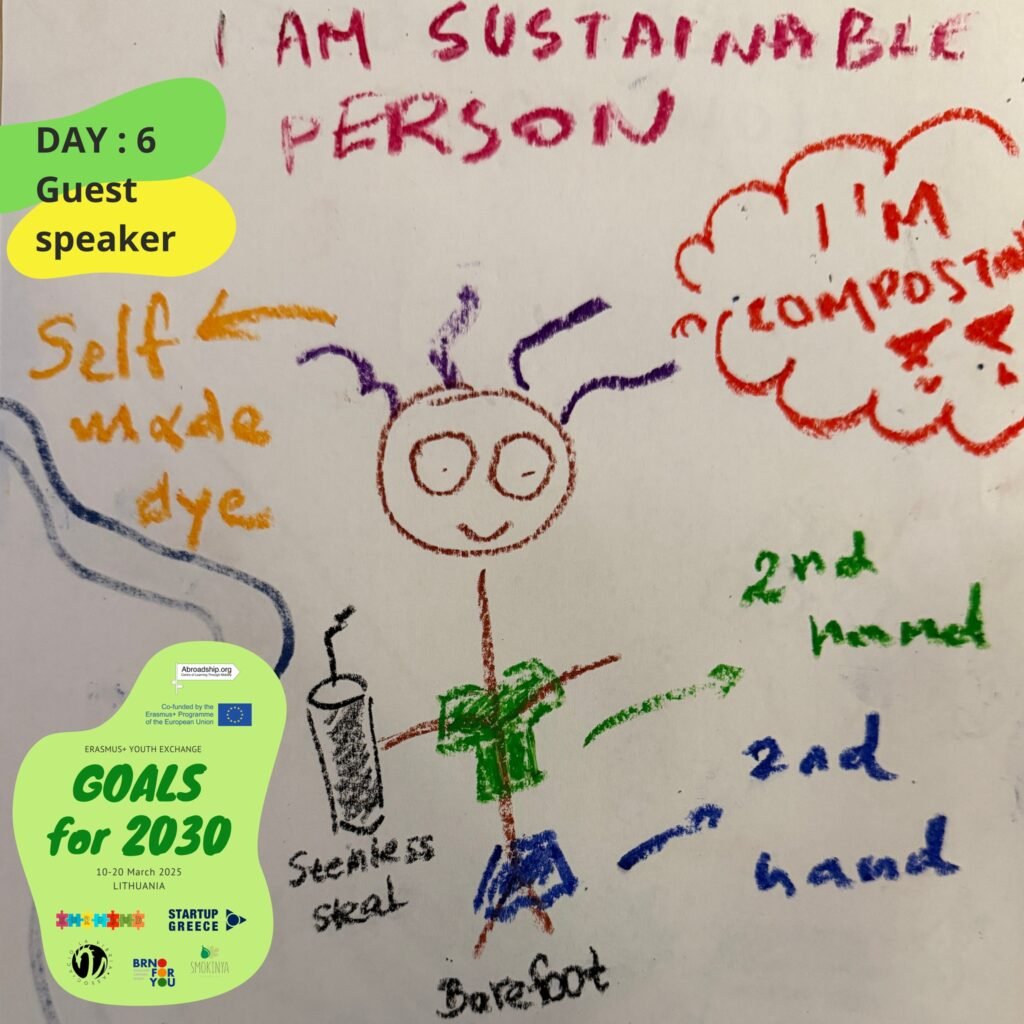 I AM SUSTAINABLE
PERSON
DAY : 6
Guest
speaker
I'M
COMPOSTIN
Self
made
dye
2nd
hand
2nd
hand
Stenless
steal
Barefoot
Abroadship.org
Centre of Learning Through Mobility
Co-funded by the
Erasmus+ Programme
of the European Union
ERASMUS+ YOUTH EXCHANGE
GOALS
for 2030
10-20 March 2025
LITHUANIA
STARTUP
GREECE
BRNO
FOR
YOU
SMOKINYA